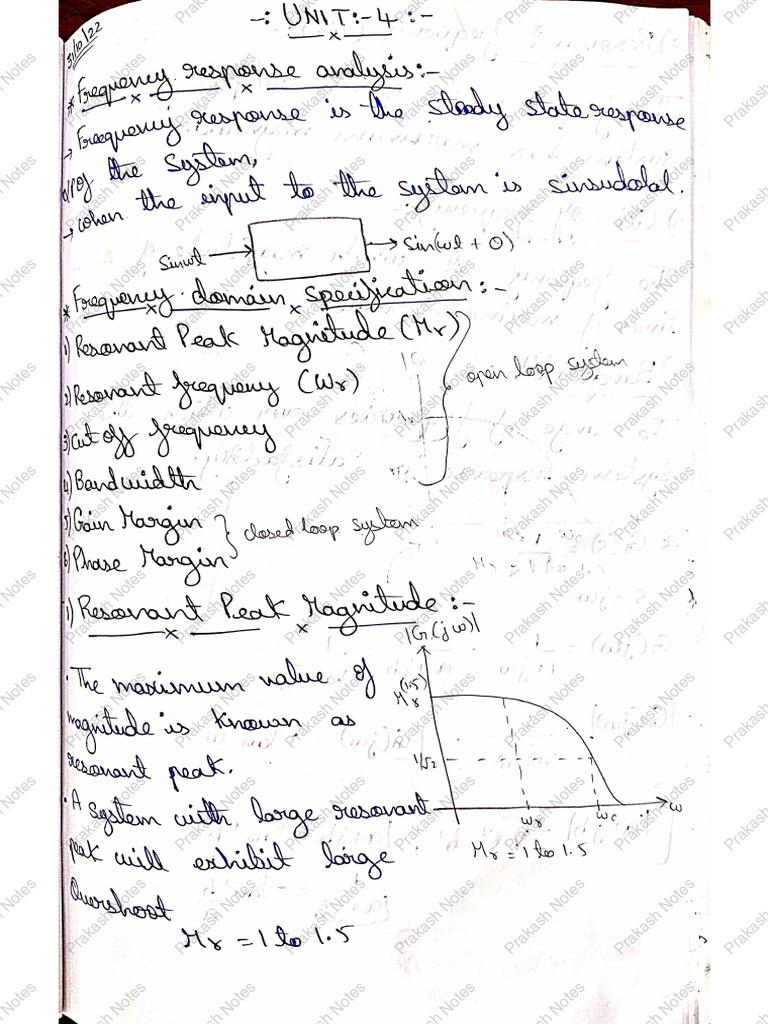 -: UNIT:-4 :-
31/10/22
* Frequency response analysis:-
→ Freequency response is the steady state response
o/p of the system,
→ when the input to the system is sinsudolal.
Sinωt → → Sin(ωt + θ)
* Frequency domain specification:-
1) Resonant Peak Magnitude (Mr)
2) Resonant frequency (ωr)
open loop system
3) Cut off frequency
4) Bandwidth
5) Gain Margin
closed loop system
6) Phase Margin
1) Resonant Peak Magnitude :-
|G(jω)|
• The maximum value of
magnitude is known as
resonant peak.
• A system with large resonant
peak will exhibit large
Overshoot
Mr = 1 to 1.5
Mr (1.5)
1/√2
ωr ωc ω
Mr = 1 to 1.5
Prakash Notes